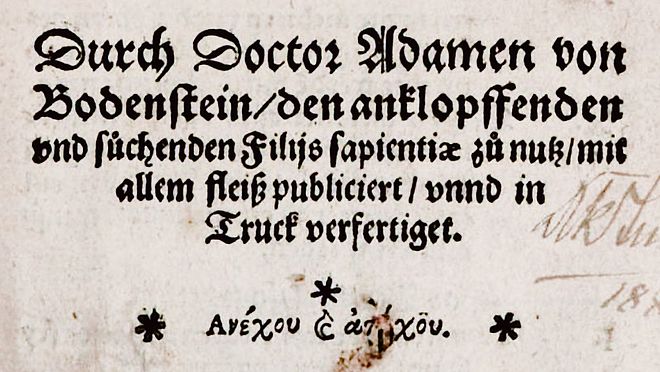 Durch Doctor Adamen von
Bodenstein/den anklopffenden
vnd sůchenden Filijs sapientiæ zů nutz/mit
allem fleiß publiciert/vnnd in
Truck verfertiget.
Ἀνέχου